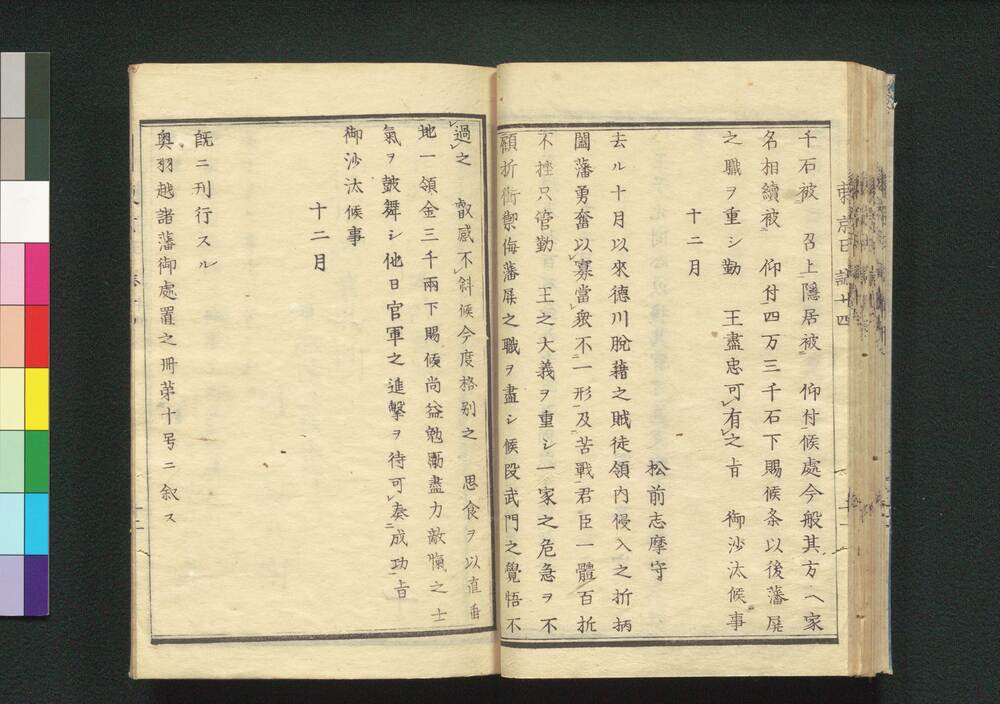 東京日記十四
千石被　召上隠居被　仰付候處今般其方ヘ家
名相續被　仰付四万三千石下賜候条以後藩屏
之職ヲ重シ勤　王盡忠可レ有レ之旨　御沙汰候事
十二月
松前志摩守
去ル十月以來德川脫藉之賊徒領內侵入之折柄
闔藩勇奮以レ寡當レ衆不二一形一及苦戰君臣一體百折
不撓只管勤　王之大義ヲ重シ一家之危急ヲ不
顧折衝禦侮藩屏之職ヲ盡シ候段武門之覺悟不
レ過レ之　叡感不レ斜候今度格別之　思食ヲ以直垂
地一領金三千兩下賜候尚益勉勵盡力敵愾之士
氣ヲ鼓舞シ他日官軍之進擊ヲ待可レ奏二成功一旨
御沙汰候事
十二月
旣ニ刊行スル
奥羽越諸藩御處置之冊第十号ニ叙ス